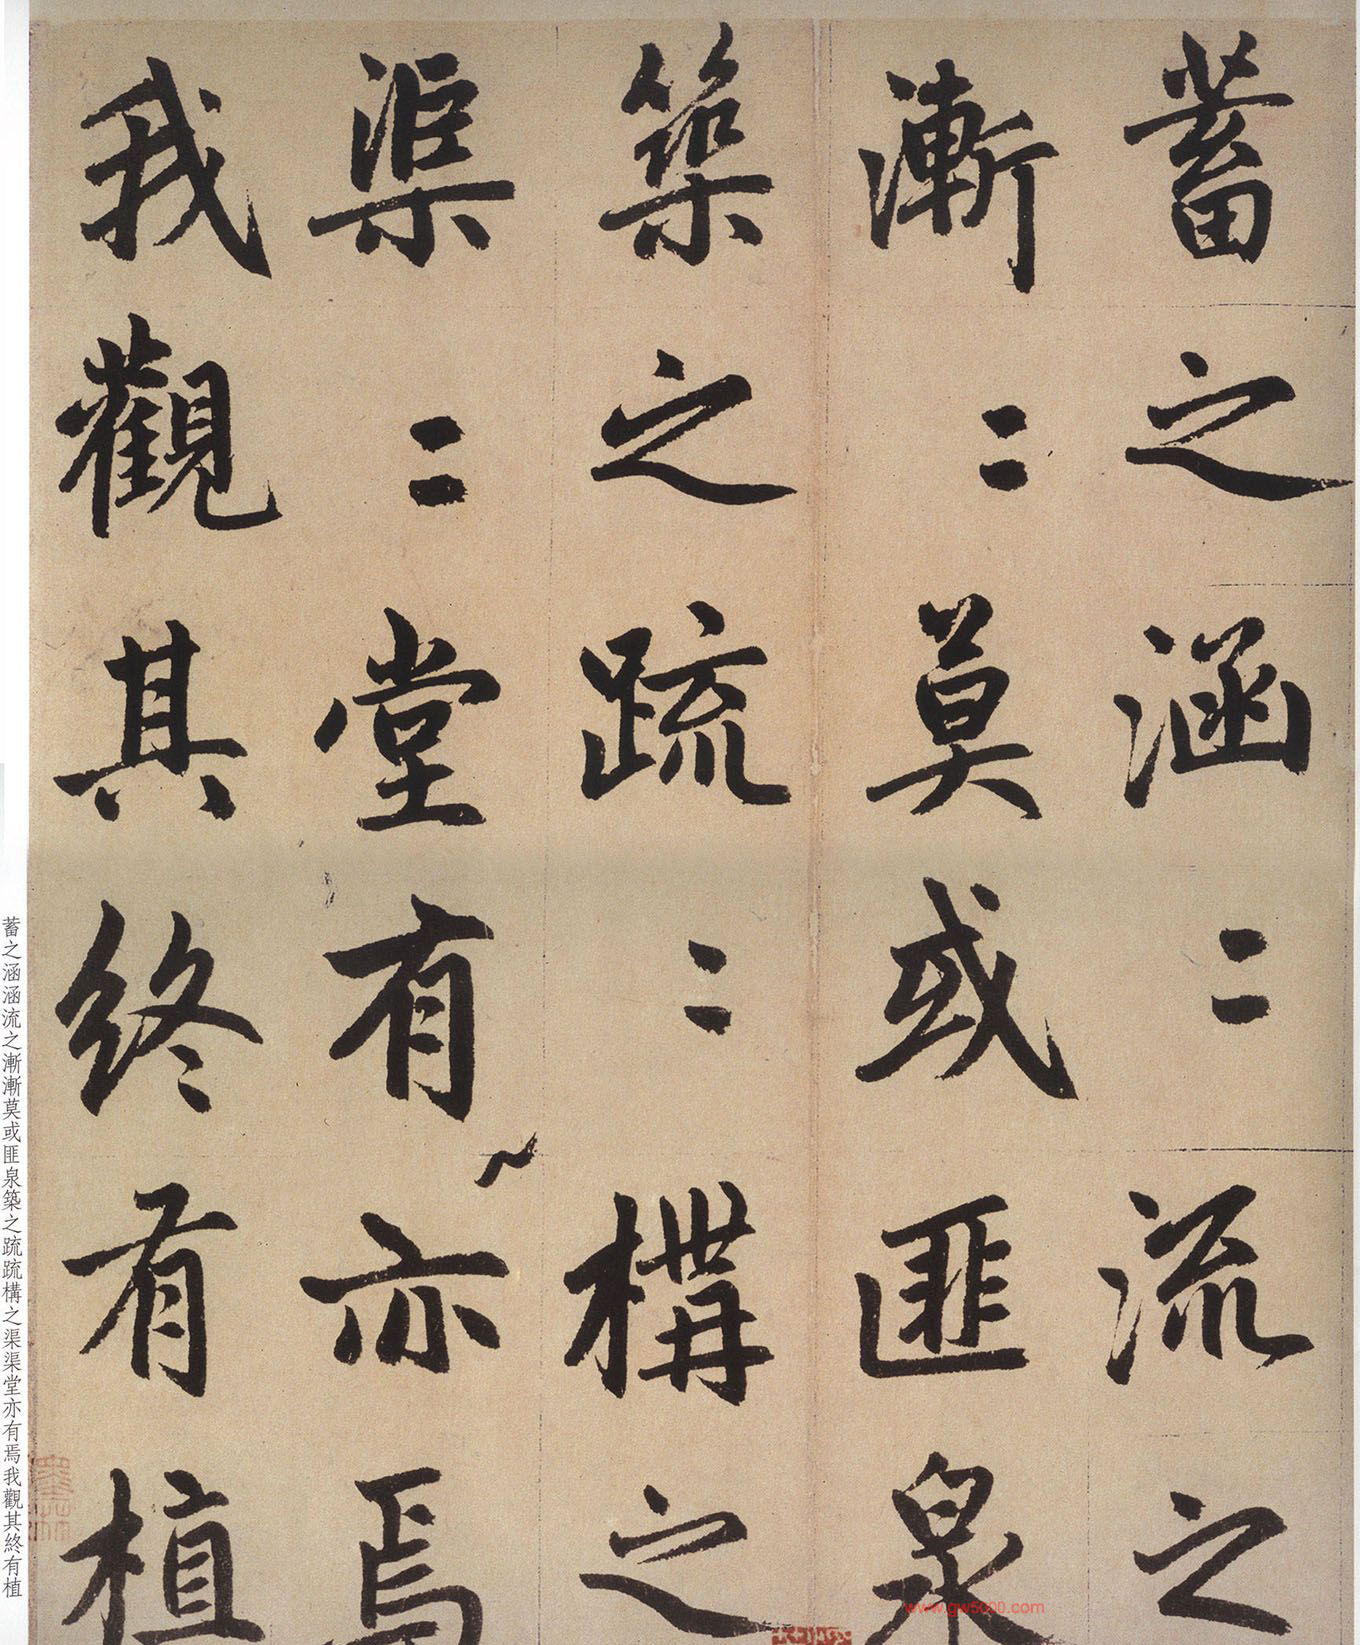 蓄之涵〻流之
漸〻莫或匪泉
築之疏〻構之
渠〻堂有亦焉
我觀其終有植
蓄之涵涵流之漸漸莫或匪泉築之疏疏構之渠渠堂亦有焉我觀其終有植
www.gw5000.com